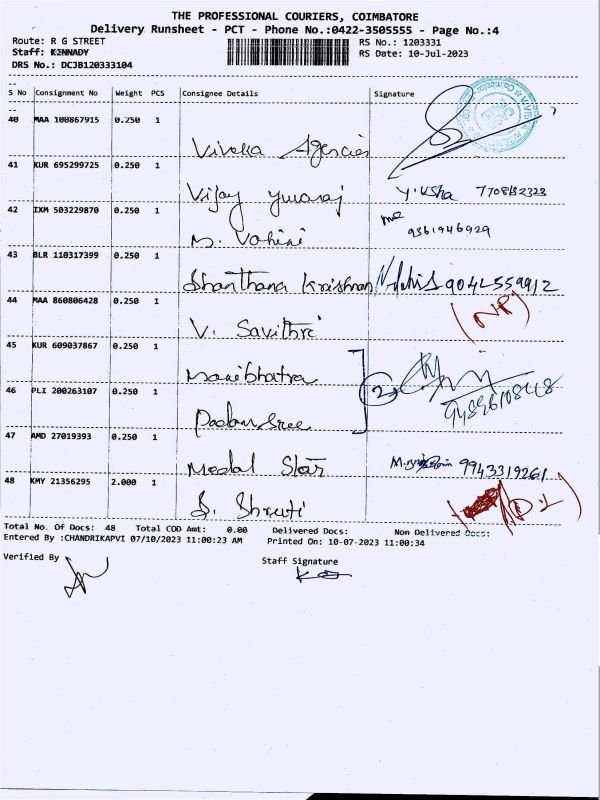 THE PROFESSIONAL COURIERS, COIMBATORE
Delivery Runsheet - PCT - Phone No.:0422-3505555 - Page No.:4
Route: R G STREET RS No.: 1203331
Staff: KENNADY RS Date: 10-Jul-2023
DRS No.: DCJB120333104
S No Consignment No Weight PCS Consignee Details Signature
40 MAA 100867915 0.250 1
Viveka Agencies
41 KUR 695299725 0.250 1
Vijay Yuvaraj Y. Usha
42 IXM 503229870 0.250 1
M. Vahini 9361946929
43 BLR 110317399 0.250 1
Shanthana Krishnan 9042559912
44 MAA 860806428 0.250 1
V. Savithri (NP)
45 KUR 609037867 0.250 1
Manibhatra
46 PLI 200263107 0.250 1
2
47 AMD 27019393 0.250 1
Medal Star 9943319261
48 KMY 21356295 2.000 1
S. Shruti
Total No. Of Docs: 48 Total COD Amt: 0.00 Delivered Docs: Non Delivered Docs:
Entered By :CHANDRIKAPVI 07/10/2023 11:00:23 AM Printed On: 10-07-2023 11:00:34
Verified By Staff Signature